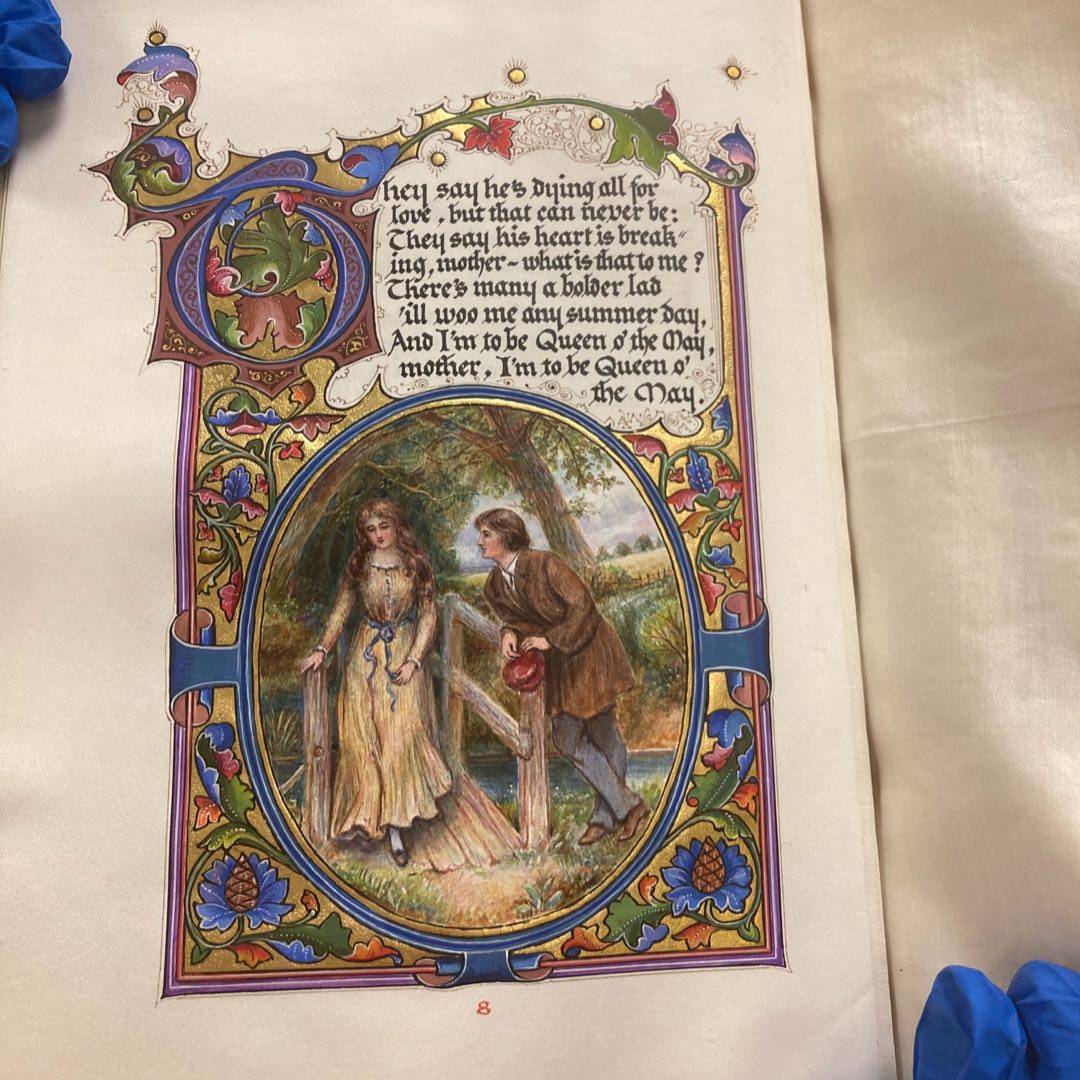 They say he's dying all for
love, but that can never be:
They say his heart is break"
ing, mother ~ what is that to me?
There's many a bolder lad
'ill woo me any summer day,
And I'm to be Queen o' the May,
mother, I'm to be Queen o'
the May.
8